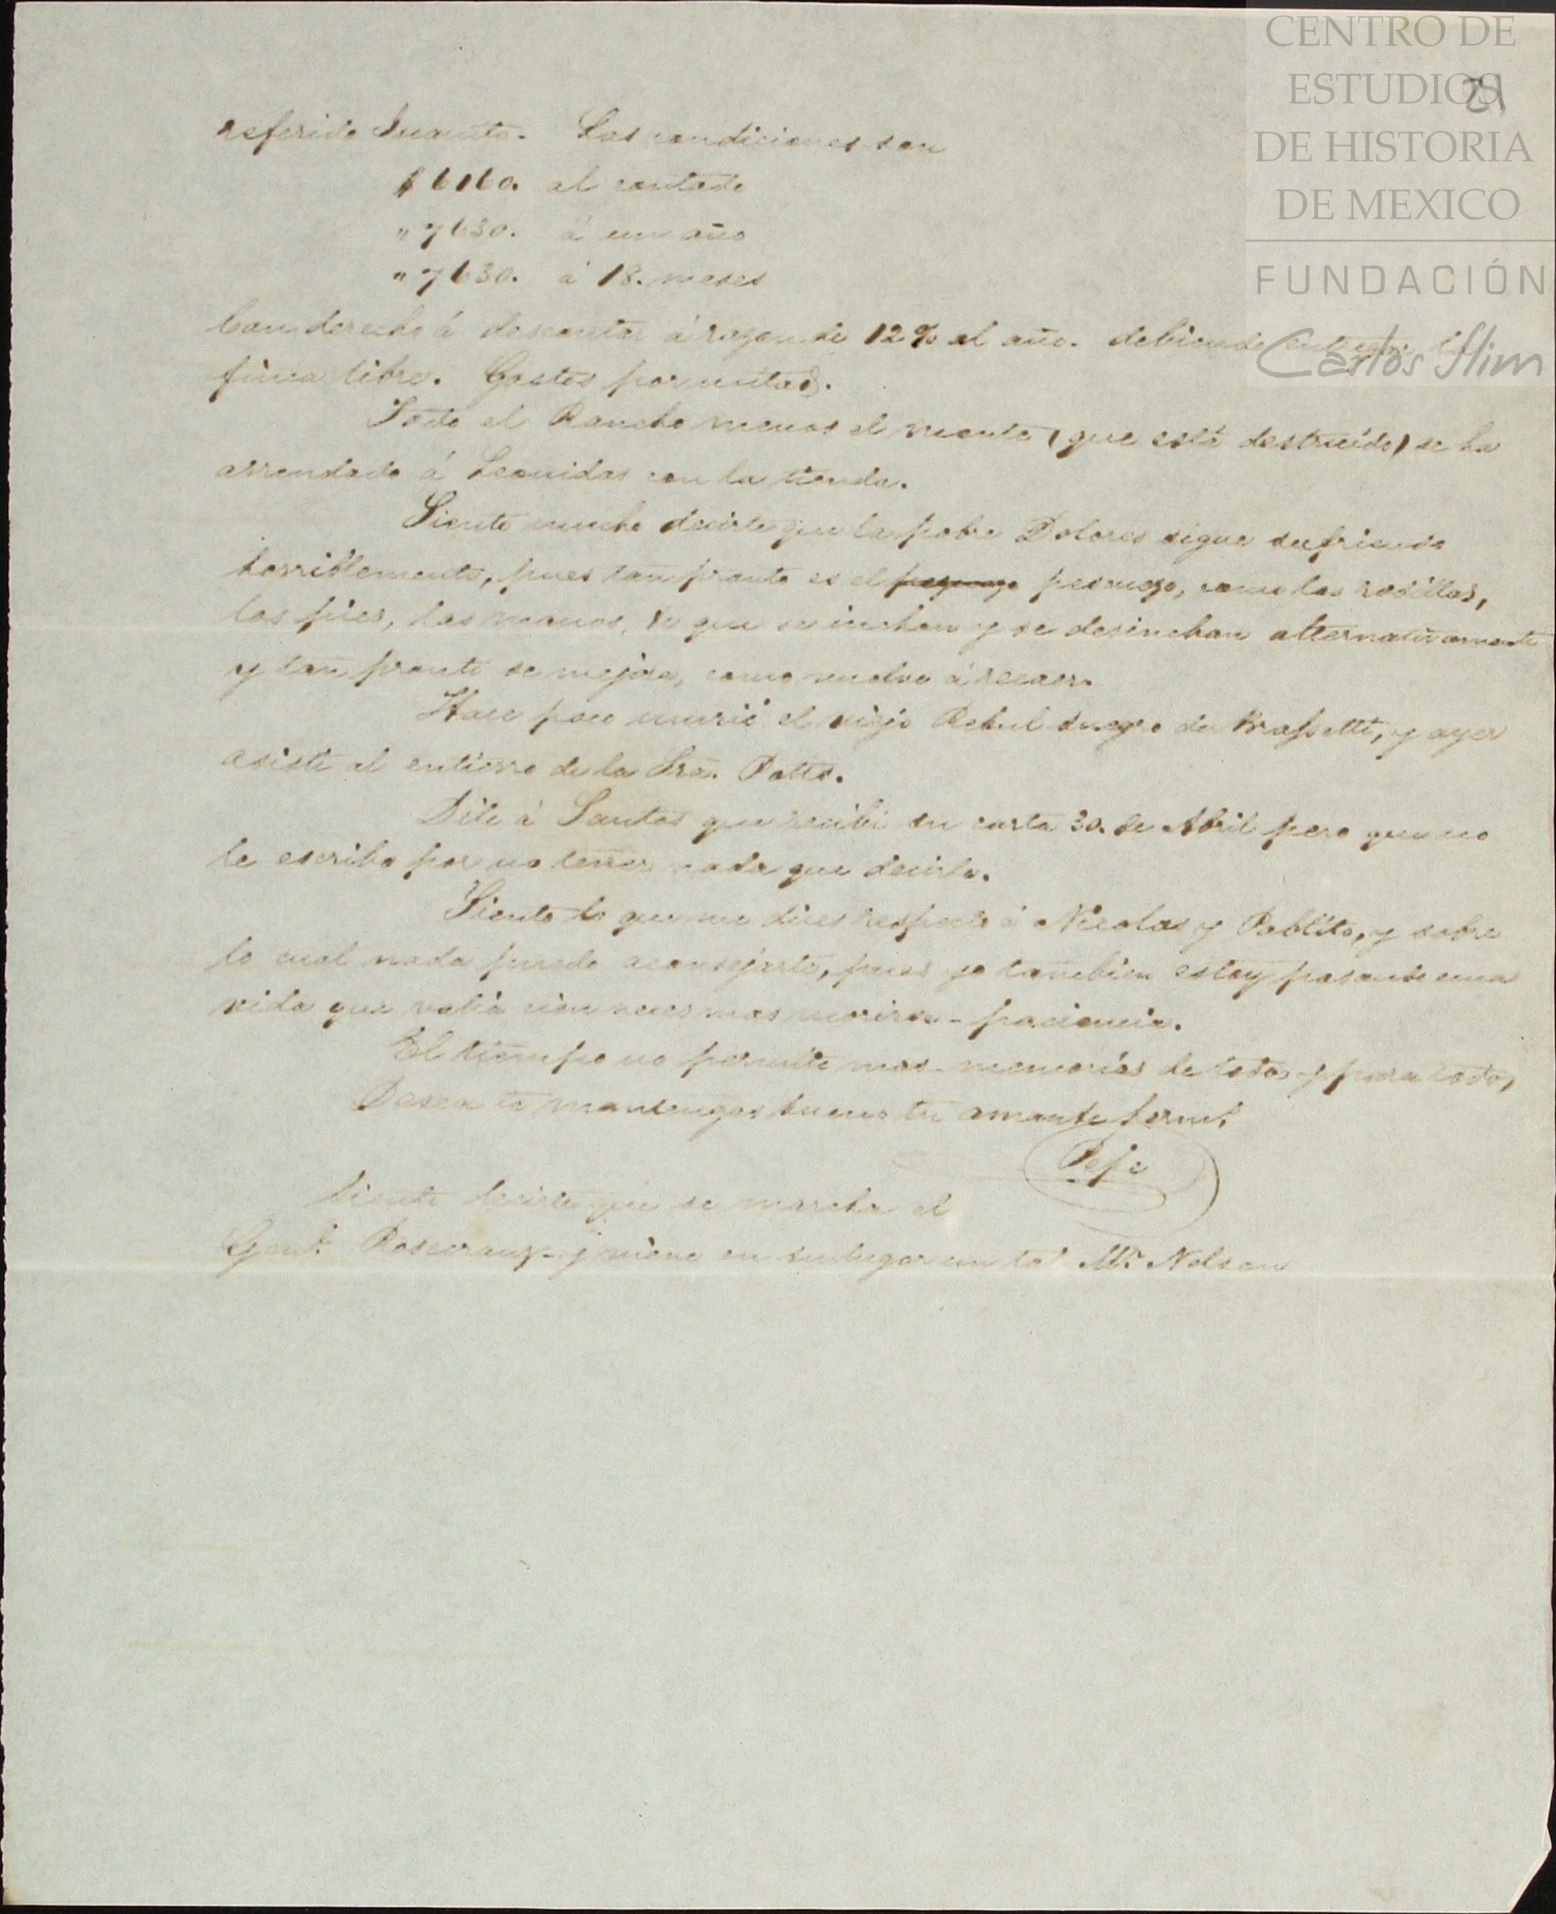 CENTRO DE
ESTUDIOS
DE HISTORIA
DE MEXICO
FUNDACIÓN
Carlos Slim
21
referido Juanito. Las condiciones son
$6160. al contado
" 7630. á un año
" 7630. á 18. meses
Con derecho á descontar á razon de 12% al año. debiendo entregar la
finca libre. Gastos por mitad.
Todo el Rancho menos el monte (que está destruido) se ha
arrendado á Leonidas con la tienda.
Siento mucho decirte que la pobre Dolores sigue sufriendo
horriblemente, pues tan pronto es el pescuezo, como las rodillas,
los pies, las manos, lo que se inchan y se desinchan alternativamente
y tan pronto se mejora, como vuelve á recaer.
Hace poco murió el viejo Rebul suegro de Brassetti, y ayer
asistí al entierro de la Sra. Potts.
Dile á Santos que recibí su carta 30. de Abril pero que no
le escribo por no tener nada que decirle.
Siento lo que me dices respecto á Nicolas y Pablito, y sobre
lo cual nada puedo aconsejarte, pues yo tambien estoy pasando una
vida que valia cien veces mas morirse - paciencia.
El tiempo no permite mas - memorias de todos y para todos,
Desea te mantengas bueno tu amante herm.
Pepe
Siento decirte que se marcha el
Genl. Rosecranz - y viene en su lugar un tal Mr. Nelson